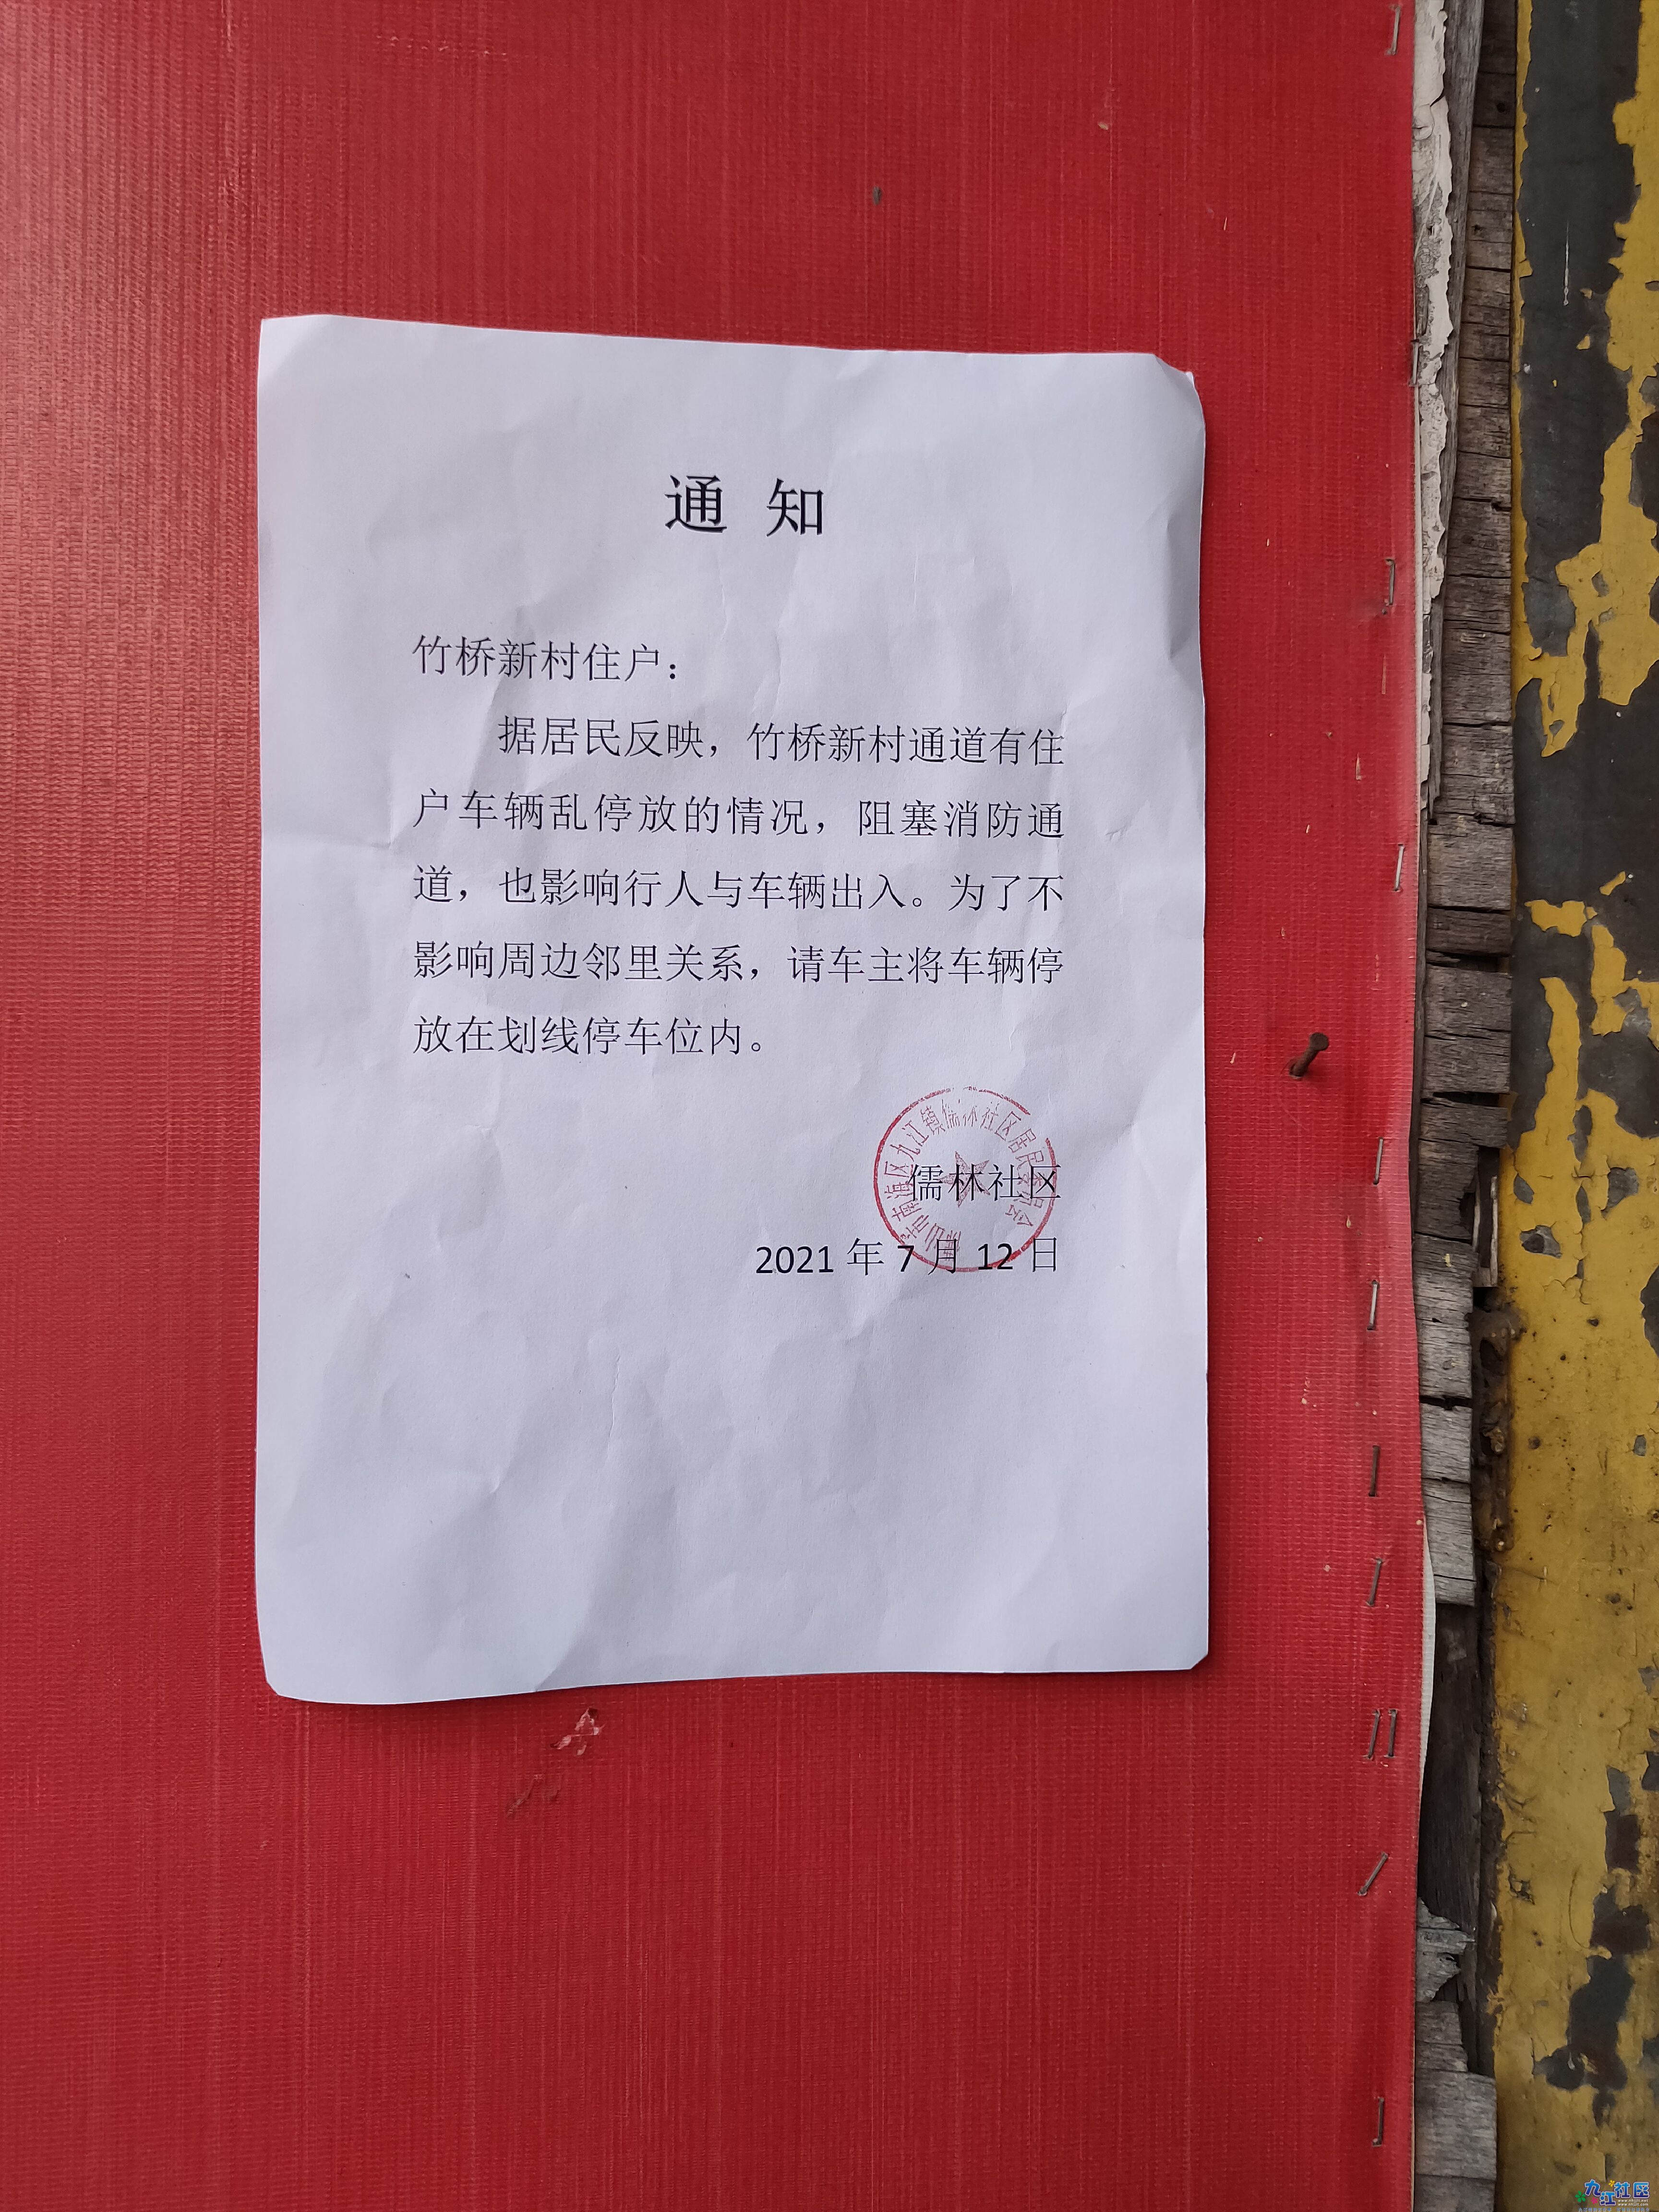 通 知
竹桥新村住户：
据居民反映，竹桥新村通道有住
户车辆乱停放的情况，阻塞消防通
道，也影响行人与车辆出入。为了不
影响周边邻里关系，请车主将车辆停
放在划线停车位内。
佛山市南海区九江镇儒林社区居民委员会
儒林社区
2021 年 7 月 12 日
九江社区